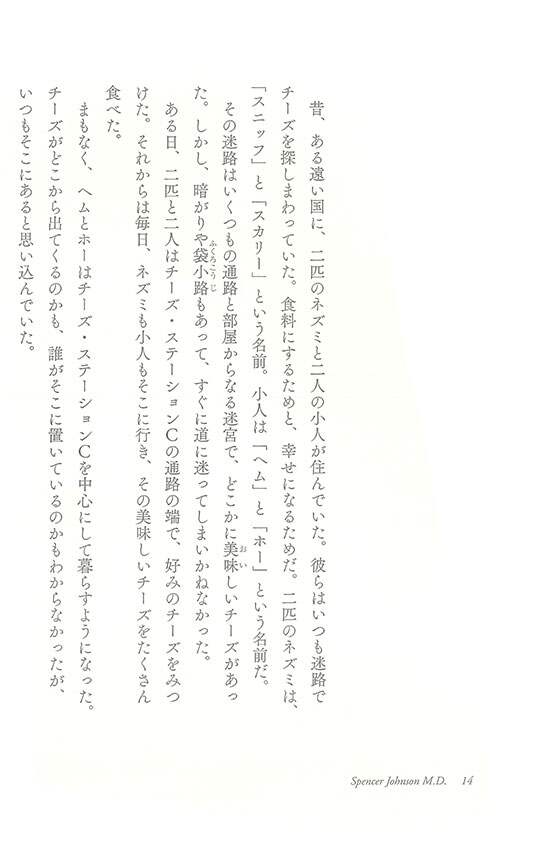 昔、ある遠い国に、二匹のネズミと二人の小人が住んでいた。彼らはいつも迷路で
チーズを探しまわっていた。食料にするためと、幸せになるためだ。二匹のネズミは、
「スニッフ」と「スカリー」という名前。小人は「ヘム」と「ホー」という名前だ。
その迷路はいくつもの通路と部屋からなる迷宮で、どこかに美味しいチーズがあっ
た。しかし、暗がりや袋小路もあって、すぐに道に迷ってしまいかねなかった。
ある日、二匹と二人はチーズ・ステーションCの通路の端で、好みのチーズをみつ
けた。それからは毎日、ネズミも小人もそこに行き、その美味しいチーズをたくさん
食べた。
まもなく、ヘムとホーはチーズ・ステーションCを中心にして暮らすようになった。
チーズがどこから出てくるのかも、誰がそこに置いているのかもわからなかったが、
いつもそこにあると思い込んでいた。
Spencer Johnson M.D. 14